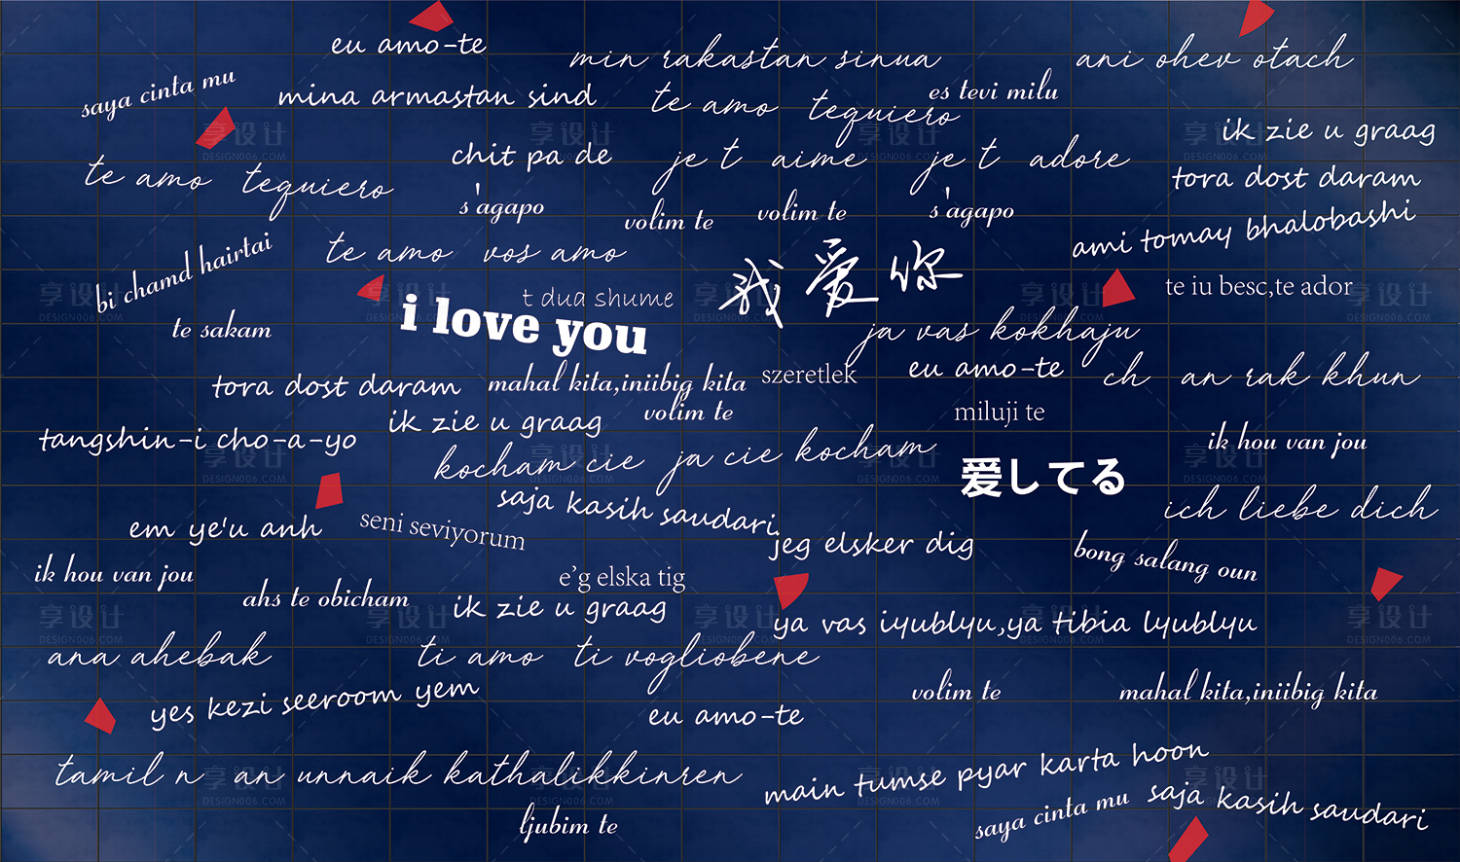 eu amo-te
min rakastan sinua
ani ohev otach
saya cinta mu
mina armastan sind
te amo tequiero
es tevi milu
ik zie u graag
te amo tequiero
chit pa de
je t aime
je t adore
tora dost daram
s'agapo
volim te
volim te
s'agapo
ami tomay bhalobashi
bi chamd hairtai
te amo vos amo
我爱你
te iu besc,te ador
t dua shume
i love you
te sakam
ja vas kokhaju
tora dost daram
mahal kita,iniibig kita
szeretlek
eu amo-te
ch an rak khun
ik zie u graag
volim te
miluji te
tangshin-i cho-a-yo
ik hou van jou
kocham cie ja cie kocham
爱してる
saja kasih saudari
ich liebe dich
em ye'u anh
seni seviyorum
jeg elsker dig
bong salang oun
ik hou van jou
e'g elska tig
ahs te obicham
ik zie u graag
ya vas iyublyu,ya tibia lyublyu
ana ahebak
ti amo ti vogliobene
yes kezi seeroom yem
volim te
mahal kita,iniibig kita
eu amo-te
tamil n an unnaik kathalikkinren
main tumse pyar karta hoon
saya cinta mu
saja kasih saudari
ljubim te
享设计
DESIGN006.COM